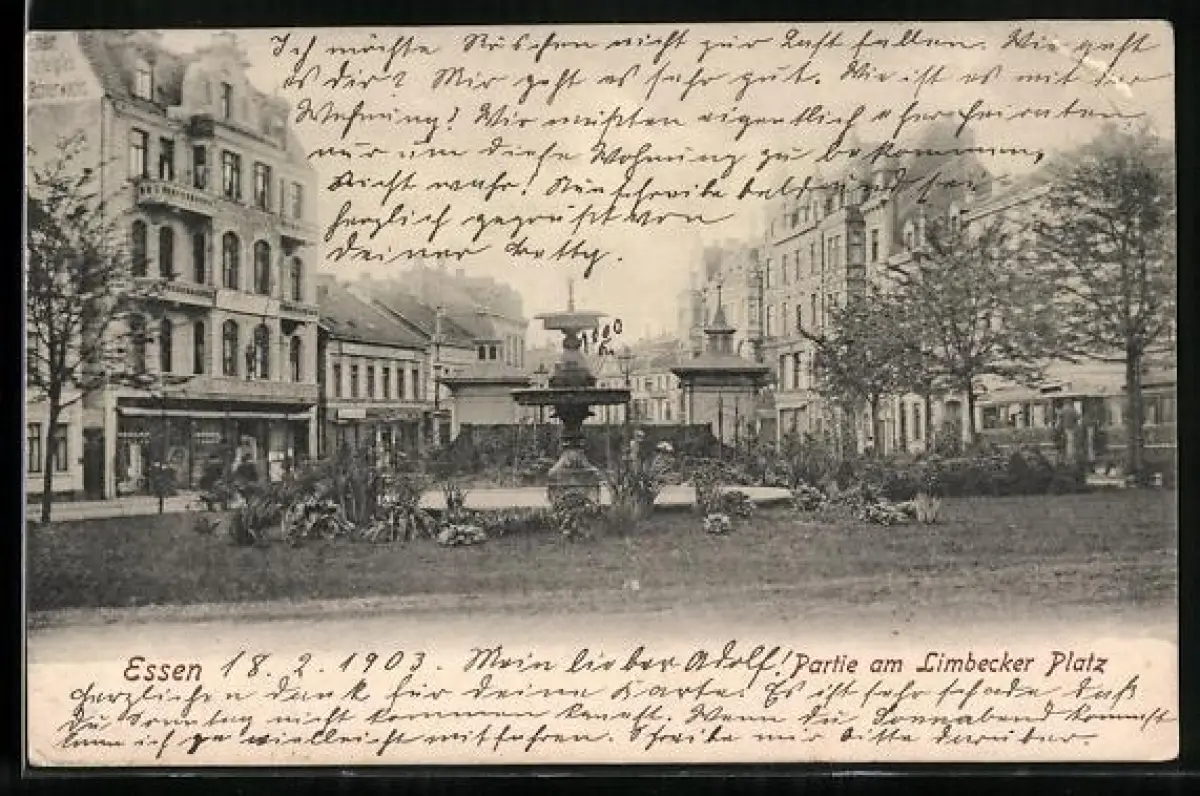 Ich möchte Röschen nicht zur Last fallen. Wie geht
es dir? Mir geht es sehr gut. Wie ist es mit der
Wohnung? Wir müßten eigentlich eher heiraten
nur um diese Wohnung zu bekommen,
Nicht wahr! Nun schreibe bald und sei
herzlich gegrüßt von
deiner Betty.
Essen 18. 2. 1903. Mein lieber Adolf! Partie am Limbecker Platz
Herzlichen Dank für deine Karte. Es ist sehr schade daß
du Sonntag nicht kommen kannst. Wenn du Sonnabend kommst
kann ich ja vielleicht mitfahren. Schreibe mir bitte darüber.